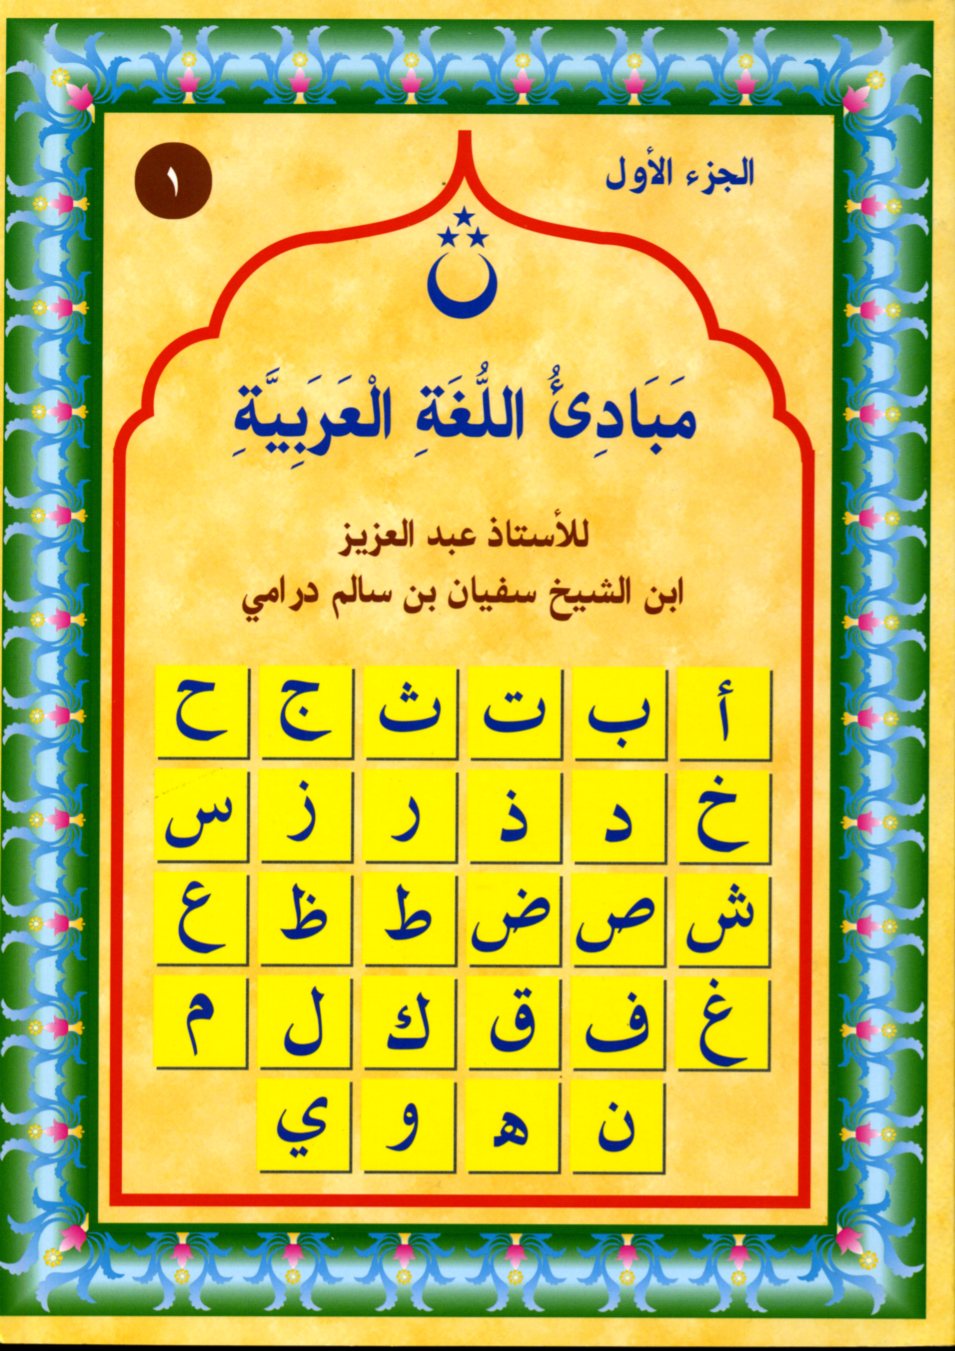 الجزء الأول
١
مَبَادِئُ اللُّغَةِ الْعَرَبِيَّةِ
للأستاذ عبد العزيز
ابن الشيخ سفيان بن سالم درامي
أ ب ت ث ج ح
خ د ذ ر ز س
ش ص ض ط ظ ع
غ ف ق ك ل م
ن ه و ي